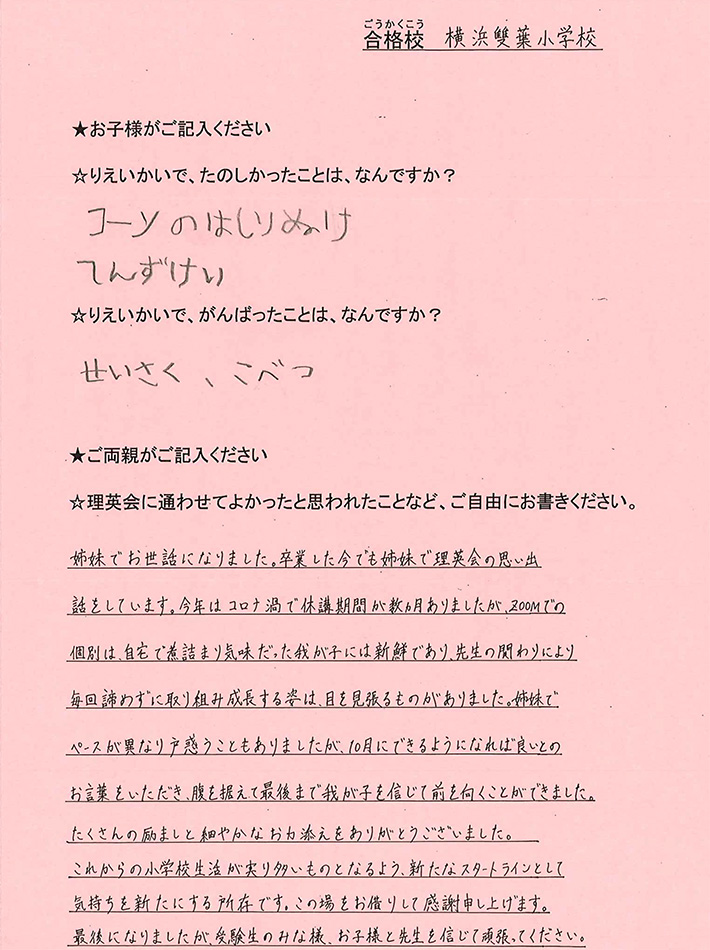 ごうかくこう
合格校 横浜雙葉小学校
★お子様がご記入ください
☆りえいかいで、たのしかったことは、なんですか？
コーンのはしりぬけ
てんずけい
☆りえいかいで、がんばったことは、なんですか？
せいさく、こべつ
★ご両親がご記入ください
☆理英会に通わせてよかったと思われたことなど、ご自由にお書きください。
姉妹でお世話になりました。卒業した今でも姉妹で理英会の思い出
話をしています。今年はコロナ渦で休講期間が数ヵ月ありましたが、ZOOMでの
個別は、自宅で煮詰まり気味だった我が子には新鮮であり、先生の関わりにより
毎回諦めずに取り組み成長する姿は、目を見張るものがありました。姉妹で
ペースが異なり戸惑うこともありましたが、10月にできるようになれば良いとの
お言葉をいただき、腹を据えて最後まで我が子を信じて前を向くことができました。
たくさんの励ましと細やかなお力添えをありがとうございました。
これからの小学校生活が実り多いものとなるよう、新たなスタートラインとして
気持ちを新たにする所存です。この場をお借りして感謝申し上げます。
最後になりましたが、受験生のみな様、お子様と先生を信じて頑張ってください。